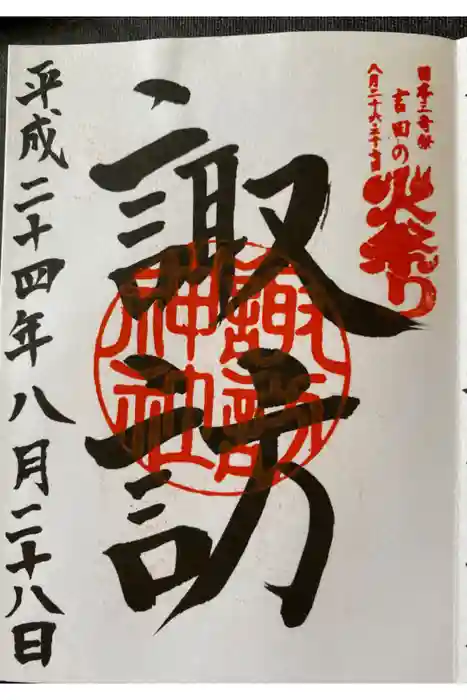 日本三奇祭
吉田の
火祭り
八月二十六・二十七日
諏訪
諏訪
神社
平成二十四年八月二十八日